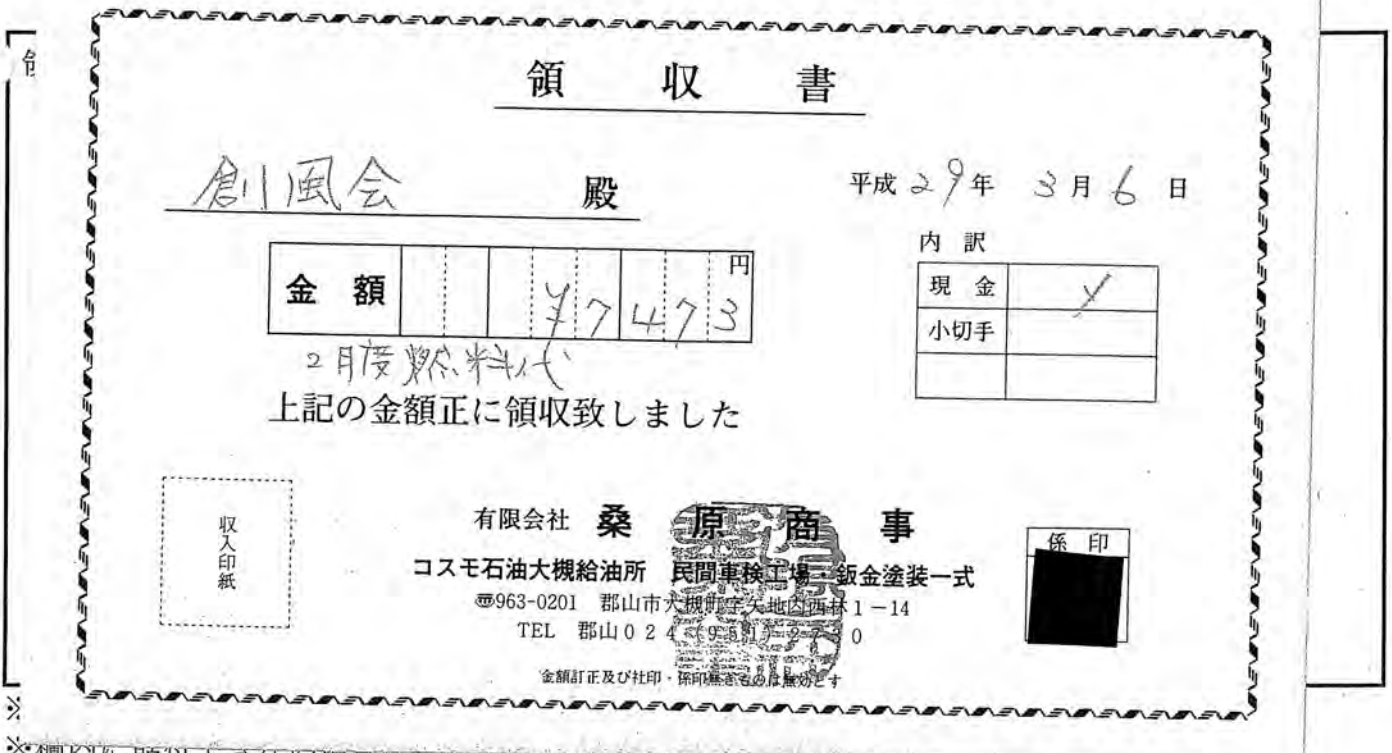 領収書
創風会 殿
平成29年 3月6日
金額 ¥7473円
2月度燃料代
上記の金額正に領収致しました
内訳
現金 レ
小切手
収入印紙
有限会社 桑原商事
コスモ石油大槻給油所 民間車検工場・鈑金塗装一式
〠963-0201 郡山市大槻町字矢地内西林1-14
TEL 郡山024(951)2730
係印
金額訂正及び社印・係印無きものは無効とす
※